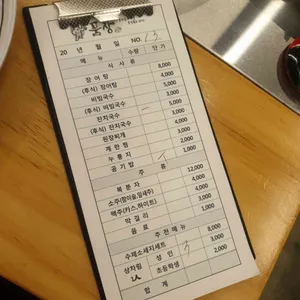 20 년 월 일 NO. 13
메 뉴 수량 단가
식 사 류
장 어 탕 8,000
(후식) 장어탕 5,000
비빔국수 5,000
(후식) 비빔국수 3,000
잔치국수 4,000
(후식) 잔치국수 3,000
된장찌개 4,000
계 란 찜 3,000
누 룽 지 2,000
공 기 밥 1,000
주 류
복 분 자 12,000
소주(참이슬,잎새주) 4,000
맥주(카스,하이트) 4,000
막 걸 리 3,000
음 료 1,000
추 천 메 뉴
수제소세지세트 8,000
상차림 성 인 3 3,000
초등학생 2,000
합 계